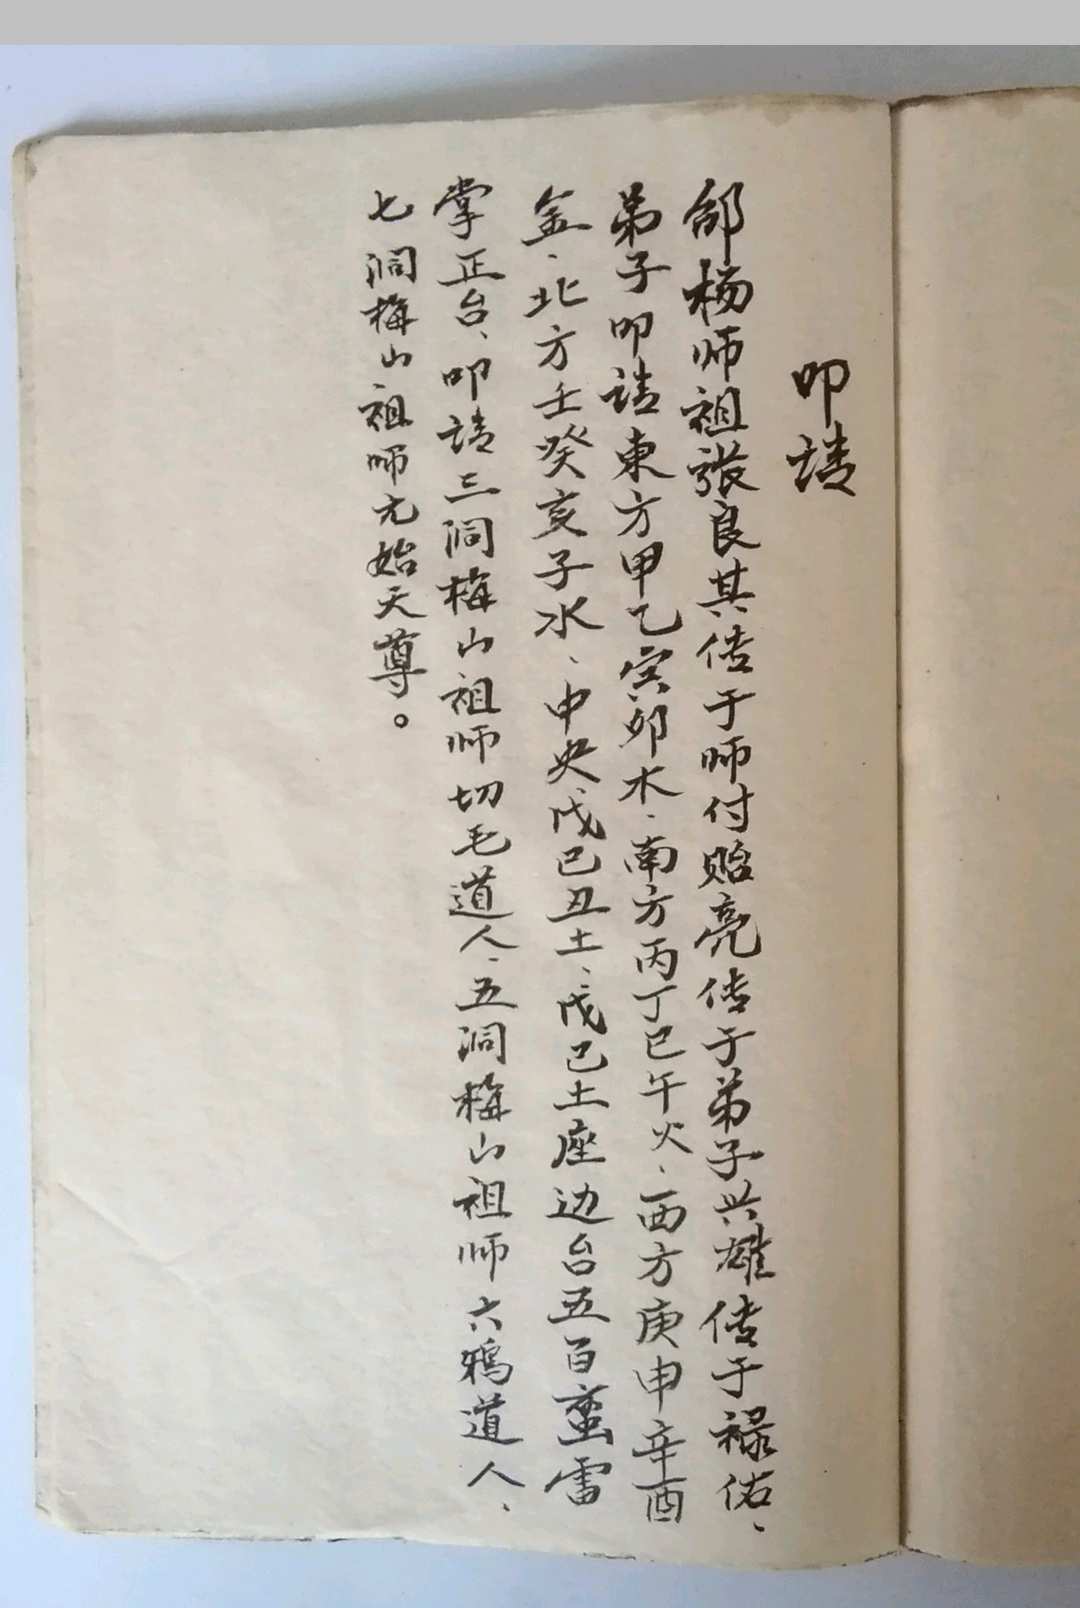 叩请
邰杨师祖张良其传于师付贻亮传于弟子兴雄传于禄佑、
弟子叩请東方甲乙寅卯木、南方丙丁巳午火、西方庚申辛酉
金、北方壬癸亥子水、中央戊己丑土、戊己土座边台五百蛮雷
掌正台、叩请三洞梅山祖师切毛道人、五洞梅山祖师六鸦道人、
七洞梅山祖师元始天尊。